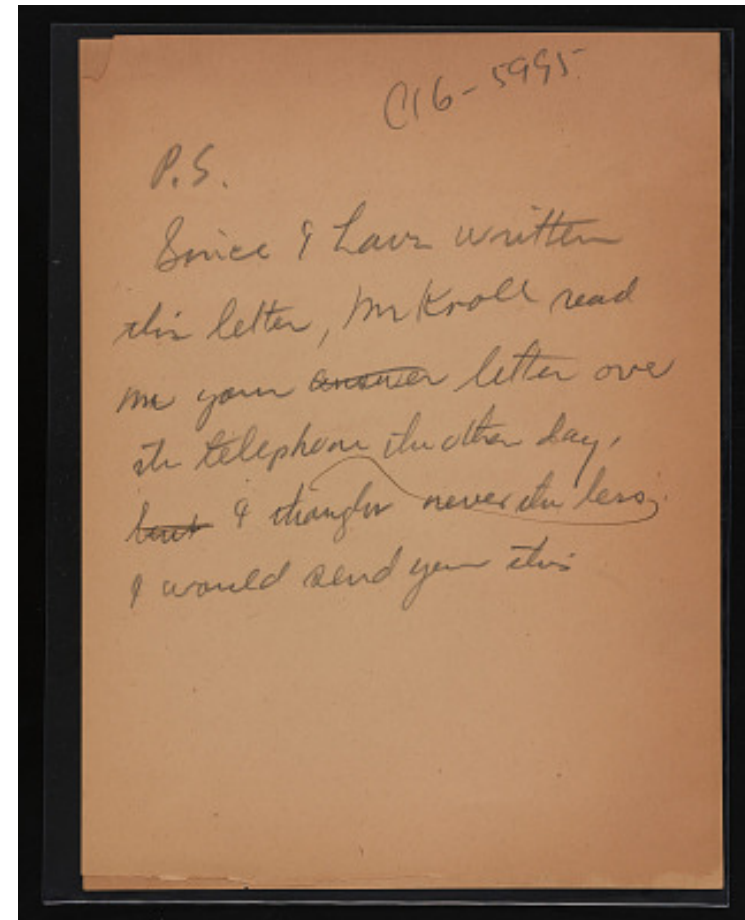 C16-5995.
P.S.
Since I have written
this letter, Mr Kroll read
me your answer letter over
the telephone the other day,
but I thought never the less,
I would send you this